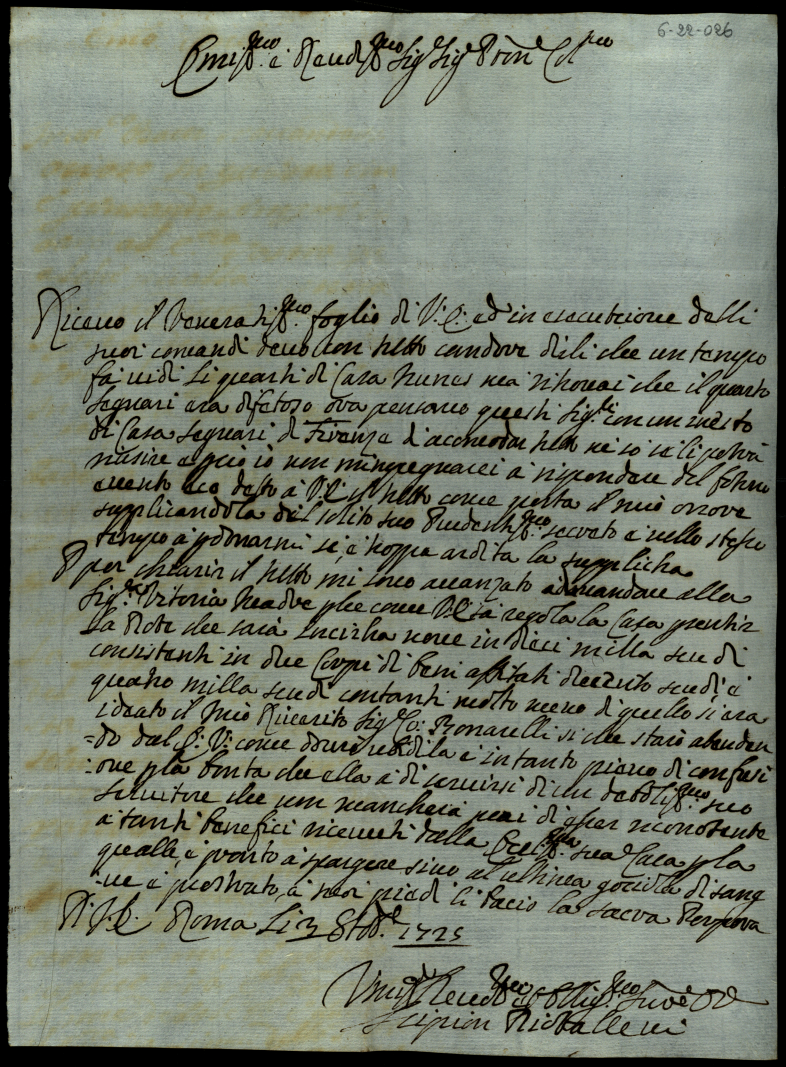 6-22-026
Emi.mo e Revd.mo Sig.r Sig.r Pron.e Col.mo
Ricevo il Venerati.mo foglio di V: E: ed in esecutione delli
suoi comandi devo con tutto candore dili che un tempo
fa vidi li quarti di Casa Nunes ma ritrovai che il quarto
Segnari era difetoso ora pensano questi Sig.ri con un inesto
di Casa Segnari di Firenze d'acomodar tutto ne so se li potrà
riusire e pciò io non m'inpegnarei a rispondere del foturo
evento eco detto a V: E il tutto come porta il mio onore
supplicandola del solito suo Prudenti.mo secreto e nello stesso
tempo a pdonarmi se, è troppa ardita la supplicha
P per chiarir il tutto mi sono avanzato a dimandare alla
Sig.ra Vitoria Madre pche come V: E sà regola la Casa presentir
la Dote che sarà incircha nove in dieci milla scudi
consistenti in due Corpi di beni affitati ducento scudi, e
quatro milla scudi contanti molto meno di quello si era
ideato il mio Riverito Sig.r Co: Bonarelli si che starò atenden
-do dal E: V: come dourò redila e intanto pieno di confusi
-one pla bontà che ella à di servirsi di un debolis.mo suo
Servitore che non mancherà mai di esser riconosente
a tanti benefici riceuti dalla Ecel.ma sua Casa pla
qualle, e pronto a spargere sino al ultima gociola di sang
-ue e prostrato, a suoi piedi li bacio la sacra Porpora
Di V: E. Roma Li 3 8bre 1725
Umi.o Devo.mo e Obblig.mo Serv.e
Scipion